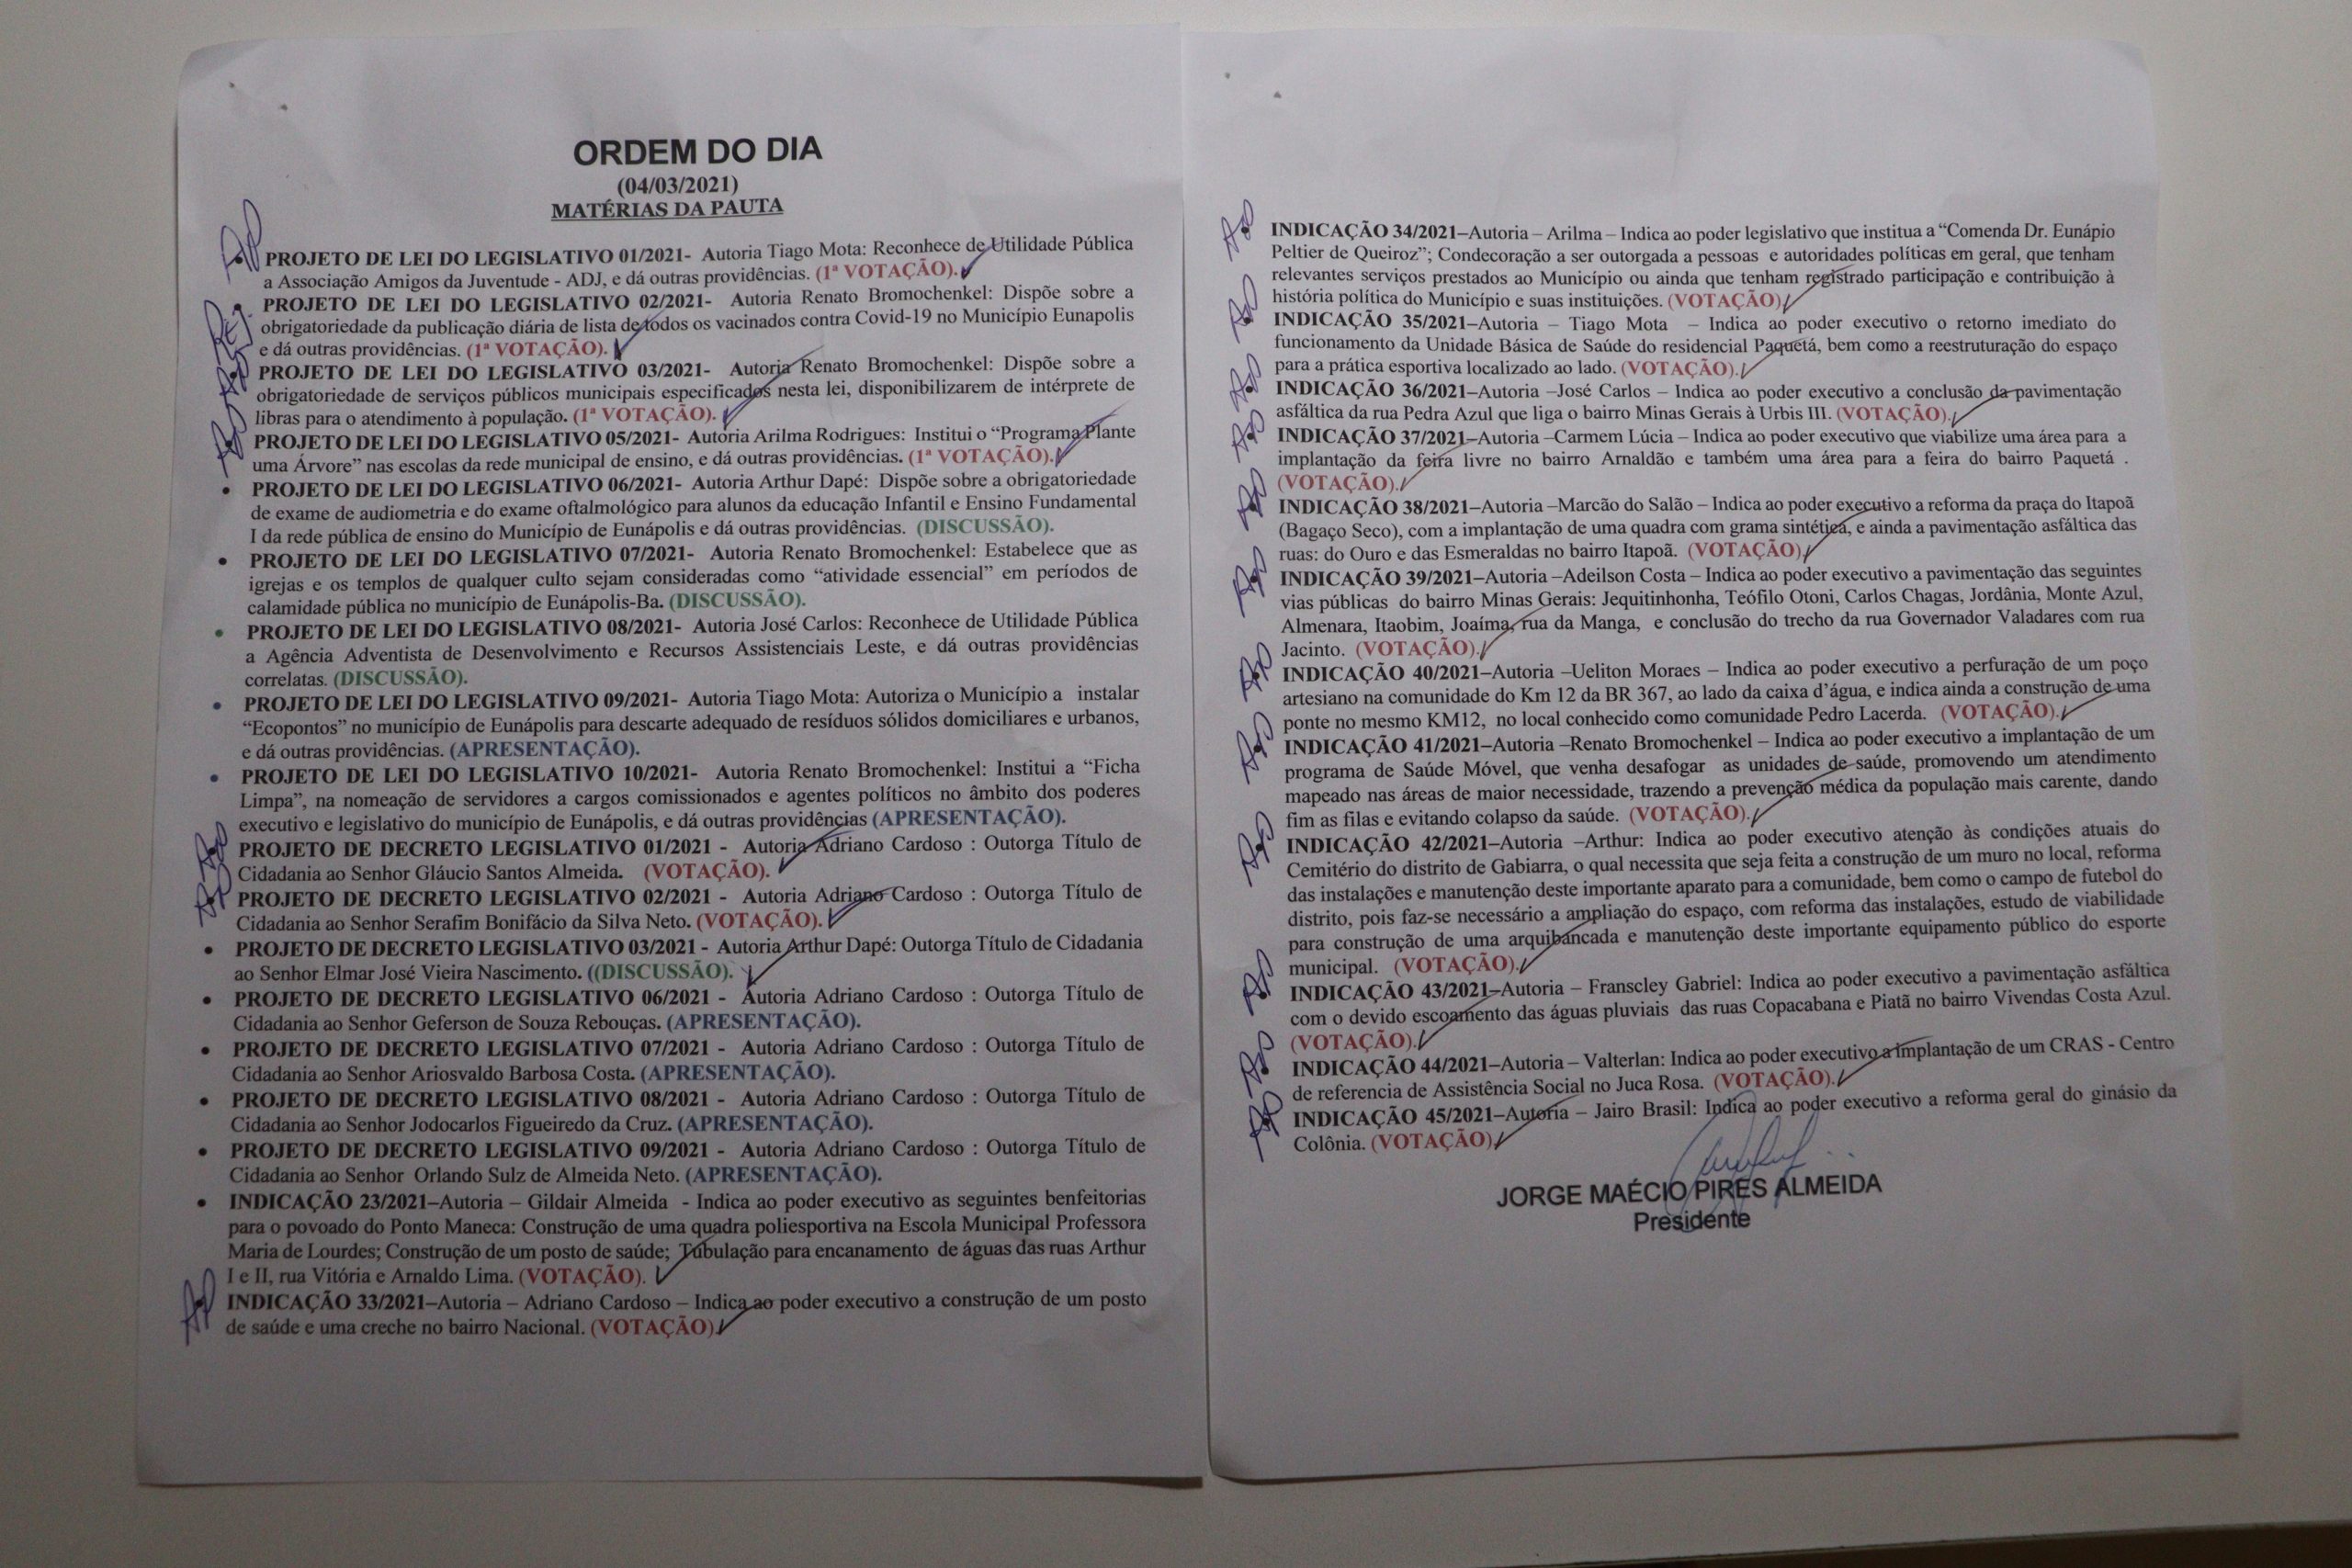 ORDEM DO DIA
(04/03/2021)
MATÉRIAS DA PAUTA
PROJETO DE LEI DO LEGISLATIVO 01/2021- Autoria Tiago Mota: Reconhece de Utilidade Pública
a Associação Amigos da Juventude - ADJ, e dá outras providências. (1ª VOTAÇÃO).
PROJETO DE LEI DO LEGISLATIVO 02/2021- Autoria Renato Bromochenkel: Dispõe sobre a
obrigatoriedade da publicação diária de lista de todos os vacinados contra Covid-19 no Município Eunapolis
e dá outras providências. (1ª VOTAÇÃO).
PROJETO DE LEI DO LEGISLATIVO 03/2021- Autoria Renato Bromochenkel: Dispõe sobre a
obrigatoriedade de serviços públicos municipais especificados nesta lei, disponibilizarem de intérprete de
libras para o atendimento à população. (1ª VOTAÇÃO).
PROJETO DE LEI DO LEGISLATIVO 05/2021- Autoria Arilma Rodrigues: Institui o “Programa Plante
uma Árvore” nas escolas da rede municipal de ensino, e dá outras providências. (1ª VOTAÇÃO).
• PROJETO DE LEI DO LEGISLATIVO 06/2021- Autoria Arthur Dapé: Dispõe sobre a obrigatoriedade
de exame de audiometria e do exame oftalmológico para alunos da educação Infantil e Ensino Fundamental
I da rede pública de ensino do Município de Eunápolis e dá outras providências. (DISCUSSÃO).
• PROJETO DE LEI DO LEGISLATIVO 07/2021- Autoria Renato Bromochenkel: Estabelece que as
igrejas e os templos de qualquer culto sejam consideradas como “atividade essencial” em períodos de
calamidade pública no município de Eunápolis-Ba. (DISCUSSÃO).
• PROJETO DE LEI DO LEGISLATIVO 08/2021- Autoria José Carlos: Reconhece de Utilidade Pública
a Agência Adventista de Desenvolvimento e Recursos Assistenciais Leste, e dá outras providências
correlatas. (DISCUSSÃO).
• PROJETO DE LEI DO LEGISLATIVO 09/2021- Autoria Tiago Mota: Autoriza o Município a instalar
“Ecopontos” no município de Eunápolis para descarte adequado de resíduos sólidos domiciliares e urbanos,
e dá outras providências. (APRESENTAÇÃO).
• PROJETO DE LEI DO LEGISLATIVO 10/2021- Autoria Renato Bromochenkel: Institui a “Ficha
Limpa”, na nomeação de servidores a cargos comissionados e agentes políticos no âmbito dos poderes
executivo e legislativo do município de Eunápolis, e dá outras providências (APRESENTAÇÃO).
PROJETO DE DECRETO LEGISLATIVO 01/2021 - Autoria Adriano Cardoso : Outorga Título de
Cidadania ao Senhor Gláucio Santos Almeida. (VOTAÇÃO).
PROJETO DE DECRETO LEGISLATIVO 02/2021 - Autoria Adriano Cardoso : Outorga Título de
Cidadania ao Senhor Serafim Bonifácio da Silva Neto. (VOTAÇÃO).
• PROJETO DE DECRETO LEGISLATIVO 03/2021 - Autoria Arthur Dapé: Outorga Título de Cidadania
ao Senhor Elmar José Vieira Nascimento. ((DISCUSSÃO).
• PROJETO DE DECRETO LEGISLATIVO 06/2021 - Autoria Adriano Cardoso : Outorga Título de
Cidadania ao Senhor Geferson de Souza Rebouças. (APRESENTAÇÃO).
• PROJETO DE DECRETO LEGISLATIVO 07/2021 - Autoria Adriano Cardoso : Outorga Título de
Cidadania ao Senhor Ariosvaldo Barbosa Costa. (APRESENTAÇÃO).
• PROJETO DE DECRETO LEGISLATIVO 08/2021 - Autoria Adriano Cardoso : Outorga Título de
Cidadania ao Senhor Jodocarlos Figueiredo da Cruz. (APRESENTAÇÃO).
• PROJETO DE DECRETO LEGISLATIVO 09/2021 - Autoria Adriano Cardoso : Outorga Título de
Cidadania ao Senhor Orlando Sulz de Almeida Neto. (APRESENTAÇÃO).
• INDICAÇÃO 23/2021–Autoria – Gildair Almeida - Indica ao poder executivo as seguintes benfeitorias
para o povoado do Ponto Maneca: Construção de uma quadra poliesportiva na Escola Municipal Professora
Maria de Lourdes; Construção de um posto de saúde; Tubulação para encanamento de águas das ruas Arthur
I e II, rua Vitória e Arnaldo Lima. (VOTAÇÃO).
INDICAÇÃO 33/2021–Autoria – Adriano Cardoso – Indica ao poder executivo a construção de um posto
de saúde e uma creche no bairro Nacional. (VOTAÇÃO)
INDICAÇÃO 34/2021–Autoria – Arilma – Indica ao poder legislativo que institua a “Comenda Dr. Eunápio
Peltier de Queiroz”; Condecoração a ser outorgada a pessoas e autoridades políticas em geral, que tenham
relevantes serviços prestados ao Município ou ainda que tenham registrado participação e contribuição à
história política do Município e suas instituições. (VOTAÇÃO)
INDICAÇÃO 35/2021–Autoria – Tiago Mota – Indica ao poder executivo o retorno imediato do
funcionamento da Unidade Básica de Saúde do residencial Paquetá, bem como a reestruturação do espaço
para a prática esportiva localizado ao lado. (VOTAÇÃO).
INDICAÇÃO 36/2021–Autoria –José Carlos – Indica ao poder executivo a conclusão da pavimentação
asfáltica da rua Pedra Azul que liga o bairro Minas Gerais à Urbis III. (VOTAÇÃO).
INDICAÇÃO 37/2021–Autoria –Carmem Lúcia – Indica ao poder executivo que viabilize uma área para a
implantação da feira livre no bairro Arnaldão e também uma área para a feira do bairro Paquetá .
(VOTAÇÃO).
INDICAÇÃO 38/2021–Autoria –Marcão do Salão – Indica ao poder executivo a reforma da praça do Itapoã
(Bagaço Seco), com a implantação de uma quadra com grama sintética, e ainda a pavimentação asfáltica das
ruas: do Ouro e das Esmeraldas no bairro Itapoã. (VOTAÇÃO)
INDICAÇÃO 39/2021–Autoria –Adeilson Costa – Indica ao poder executivo a pavimentação das seguintes
vias públicas do bairro Minas Gerais: Jequitinhonha, Teófilo Otoni, Carlos Chagas, Jordânia, Monte Azul,
Almenara, Itaobim, Joaíma, rua da Manga, e conclusão do trecho da rua Governador Valadares com rua
Jacinto. (VOTAÇÃO).
INDICAÇÃO 40/2021–Autoria –Ueliton Moraes – Indica ao poder executivo a perfuração de um poço
artesiano na comunidade do Km 12 da BR 367, ao lado da caixa d’água, e indica ainda a construção de uma
ponte no mesmo KM12, no local conhecido como comunidade Pedro Lacerda. (VOTAÇÃO).
INDICAÇÃO 41/2021–Autoria –Renato Bromochenkel – Indica ao poder executivo a implantação de um
programa de Saúde Móvel, que venha desafogar as unidades de saúde, promovendo um atendimento
mapeado nas áreas de maior necessidade, trazendo a prevenção médica da população mais carente, dando
fim as filas e evitando colapso da saúde. (VOTAÇÃO).
INDICAÇÃO 42/2021–Autoria –Arthur: Indica ao poder executivo atenção às condições atuais do
Cemitério do distrito de Gabiarra, o qual necessita que seja feita a construção de um muro no local, reforma
das instalações e manutenção deste importante aparato para a comunidade, bem como o campo de futebol do
distrito, pois faz-se necessário a ampliação do espaço, com reforma das instalações, estudo de viabilidade
para construção de uma arquibancada e manutenção deste importante equipamento público do esporte
municipal. (VOTAÇÃO).
INDICAÇÃO 43/2021–Autoria – Franscley Gabriel: Indica ao poder executivo a pavimentação asfáltica
com o devido escoamento das águas pluviais das ruas Copacabana e Piatã no bairro Vivendas Costa Azul.
(VOTAÇÃO).
INDICAÇÃO 44/2021–Autoria – Valterlan: Indica ao poder executivo a implantação de um CRAS - Centro
de referencia de Assistência Social no Juca Rosa. (VOTAÇÃO).
INDICAÇÃO 45/2021–Autoria – Jairo Brasil: Indica ao poder executivo a reforma geral do ginásio da
Colônia. (VOTAÇÃO)
JORGE MAÉCIO PIRES ALMEIDA
Presidente